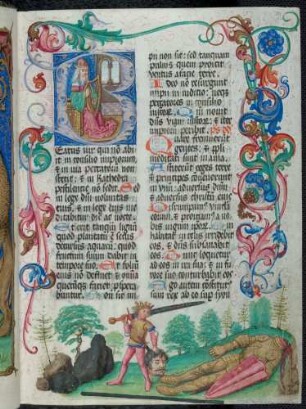 Eatus uir qui no abi
it in consilio impiorum
& in uia peccatoru non
stetit: & in kathedra
pestilencie no sedit. Sed
in lege dni uoluntas
eius: & in lege eius me
ditabitur die ac nocte.
Et erit tanqua lignu
quod plantatu e secus
decursus aquaru: quod
fructum suum dabit in
tempore suo. Et foliu
eius no defluet: & omia
quecuqz faciet prospera
buntur. Non sic im
pii non sic: sed tanquam
puluis quem proicit
ventus a facie terre.
Ideo no resurgunt
impii in iudicio: neqz
peccatores in consilio
iustor. Qm nouit
dns viam iustor: & iter
impiorum peribit.
Quare fremuerunt
gentes: & populi
meditati sunt inania.
Astiterunt reges terre
& principes conuenerunt
in unu: aduersus dnm
& aduersus christu eius
eorum: & proiciam a no
bis iugum ipsoru. Qui
habitat in celis irridebit
eos: & dns subsannabit
eos. Tunc loquetur
ad eos in ira sua: & in fu
rore suo conturbabit eos
Ego autem constitut
sum rex ab eo sup syon